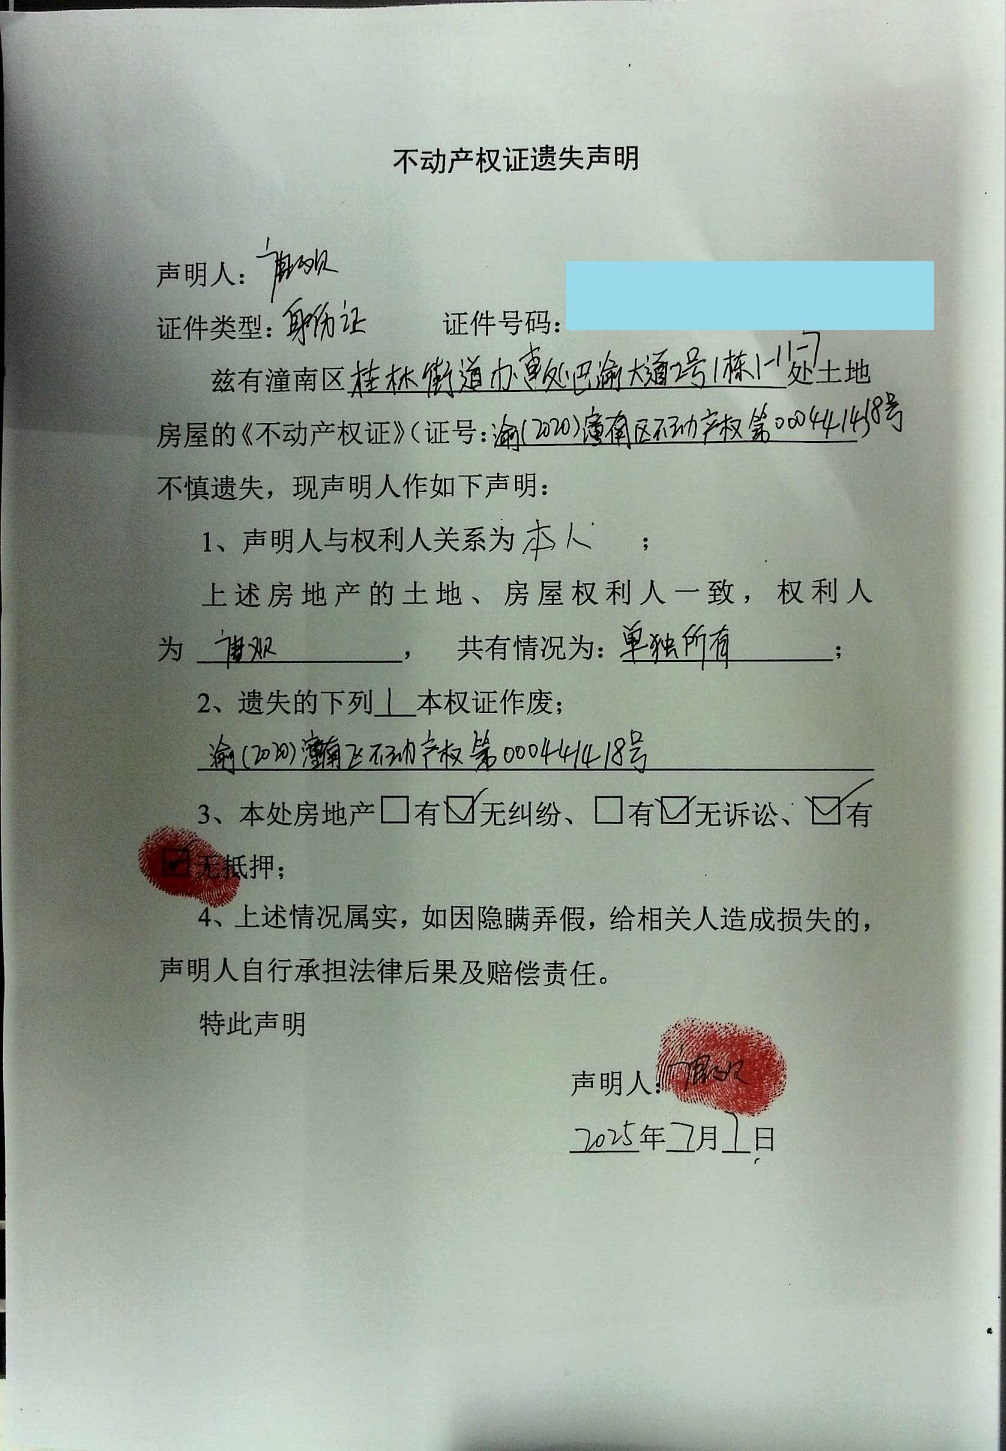 不动产权证遗失声明
声明人：唐双
证件类型：身份证 证件号码：
兹有潼南区桂林街道办事处巴渝大道2号1栋1-11-7处土地
房屋的《不动产权证》（证号：渝(2020)潼南区不动产权第000441418号
不慎遗失，现声明人作如下声明：
1、声明人与权利人关系为本人；
上述房地产的土地、房屋权利人一致，权利人
为 唐双， 共有情况为：单独所有；
2、遗失的下列1本权证作废；
渝(2020)潼南区不动产权第000441418号
3、本处房地产□有☑无纠纷、□有☑无诉讼、☑有
☑无抵押；
4、上述情况属实，如因隐瞒弄假，给相关人造成损失的，
声明人自行承担法律后果及赔偿责任。
特此声明
声明人：唐双
2025年7月1日